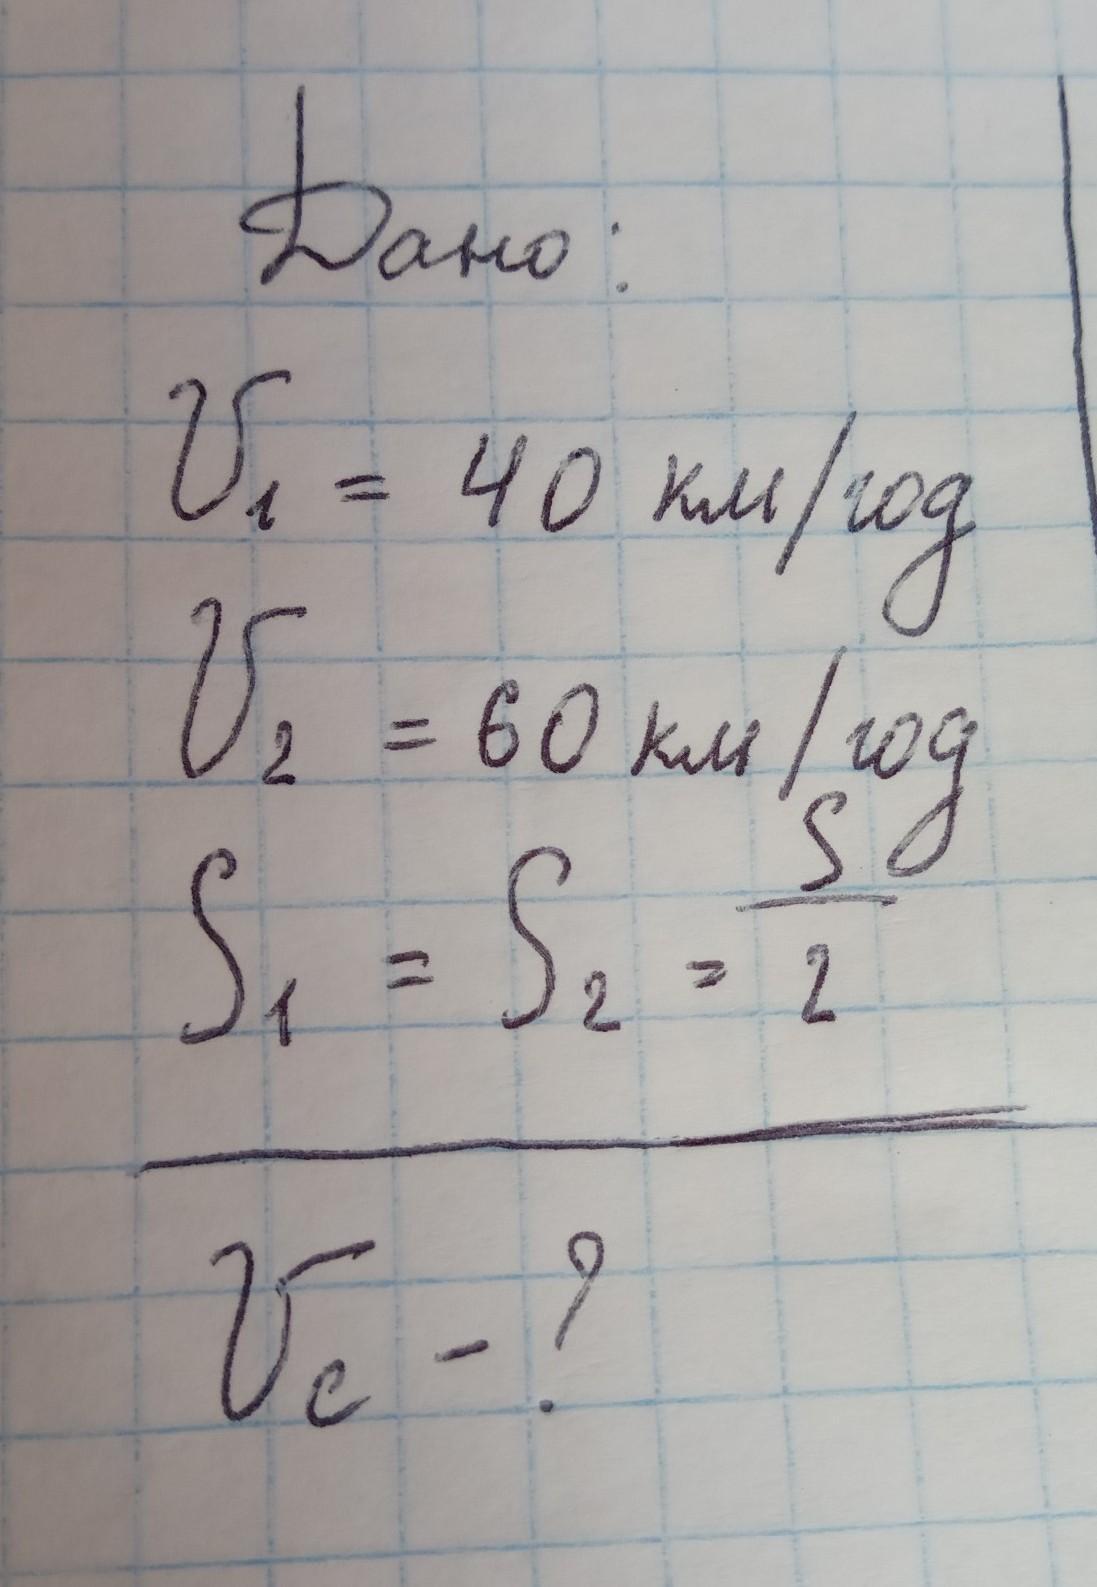 Дано:
V₁ = 40 км/год
V₂ = 60 км/год
S₁ = S₂ = S/2
Vc - ?